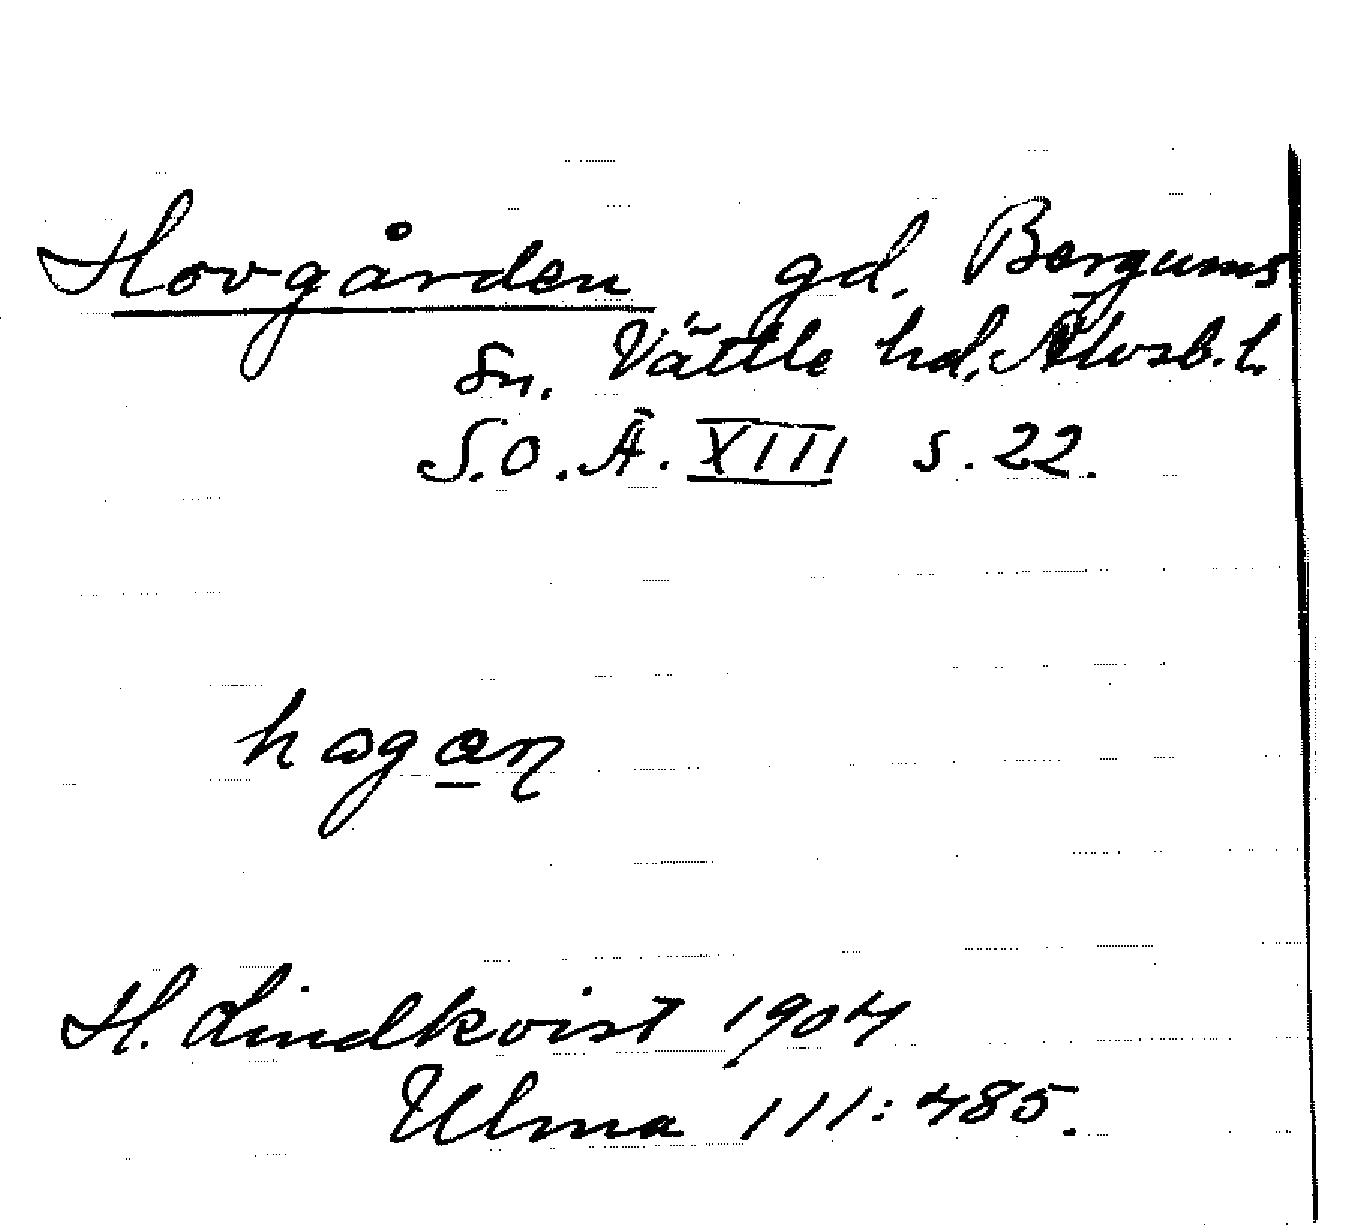 Hovgården gd. Bergums
sn. Vättle hd. Älvsb. l.
S.O.Ä. XIII s. 22.
hagan
H. Lindkvist 1904
Ulma 111:485.